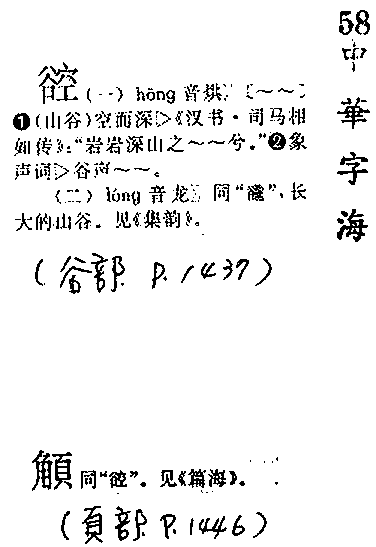 58
中華字海
谾 (一) hōng 音烘〕〔～～〕
❶(山谷)空而深▷《汉书·司马相
如传》：“岩岩深山之～～兮。”❷象
声词▷谷声～～。
(二) lóng 音龙〕 同“豅”，长
大的山谷。见《集韵》。
(谷部 P.1437)
同“谾”。见《篇海》。
(頁部 P.1446)